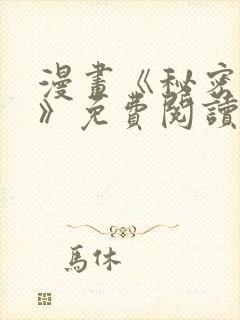 漫畫《秘密
》免費閱讀
馬休